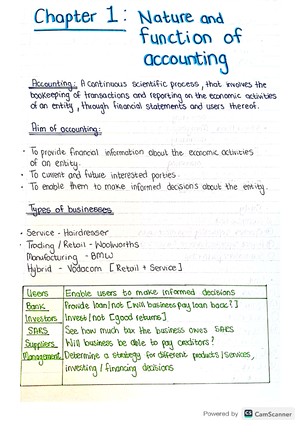 Chapter 1: Nature and
function of
accounting
Accounting: A continuous scientific process, that involves the
bookeeping of transactions and reporting on the economic activities
of an entity, through financial statements and users thereof.
Aim of accounting:
· To provide financial information about the economic activities
of an entity.
· To current and future interested parties.
· To enable them to make informed decisions about the entity.
Types of businesses
· Service - Hairdreaser
· Trading / Retail - Woolworths
Manufacturing - BMW
Hybrid - Vodacom [Retail + Service]
Users Enable users to make informed decisions
Bank Provide loan/not [Will business pay loan back?]
Investors Invest/not [good returns]
SARS See how much tax the business owes SARS
Suppliers Will business be able to pay creditors?
Management Determine a strategy for different products/services,
investing / financing decisions
Powered by CS CamScanner